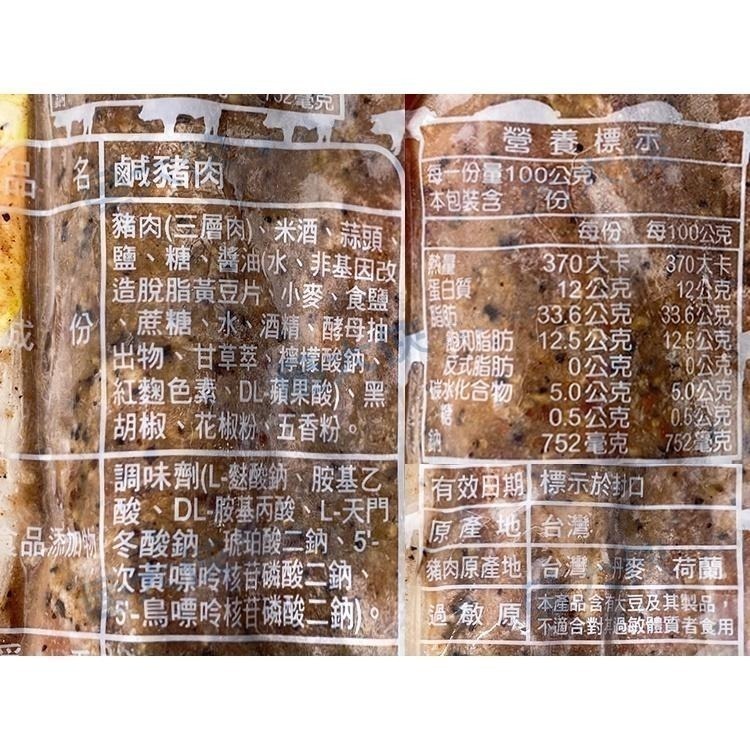 752毫克
品名 鹹豬肉
成份
豬肉(三層肉)、米酒、蒜頭、
鹽、糖、醬油(水、非基因改
造脫脂黃豆片 小麥、食鹽
、蔗糖、水、酒精、酵母抽
出物、甘草萃、檸檬酸鈉、
紅麴色素、DL-蘋果酸)、黑
胡椒、花椒粉、五香粉。
食品添加物
調味劑(L-麩酸鈉、胺基乙
酸、DL-胺基丙酸、L-天門
冬酸鈉、琥珀酸二鈉、5'-
次黃嘌呤核苷磷酸二鈉、
5'-鳥嘌呤核苷磷酸二鈉)。
營養標示
每一份量100公克
本包裝含 份
每份 每100公克
熱量 370大卡 370大卡
蛋白質 12公克 12公克
脂肪 33.6公克 33.6公克
飽和脂肪 12.5公克 12.5公克
反式脂肪 0公克 0公克
碳水化合物 5.0公克 5.0公克
糖 0.5公克 0.5公克
鈉 752毫克 752毫克
有效日期 標示於封口
原產地 台灣
豬肉原產地 台灣、丹麥、荷蘭
過敏原 本產品含有大豆及其製品，
不適合對其過敏體質者食用